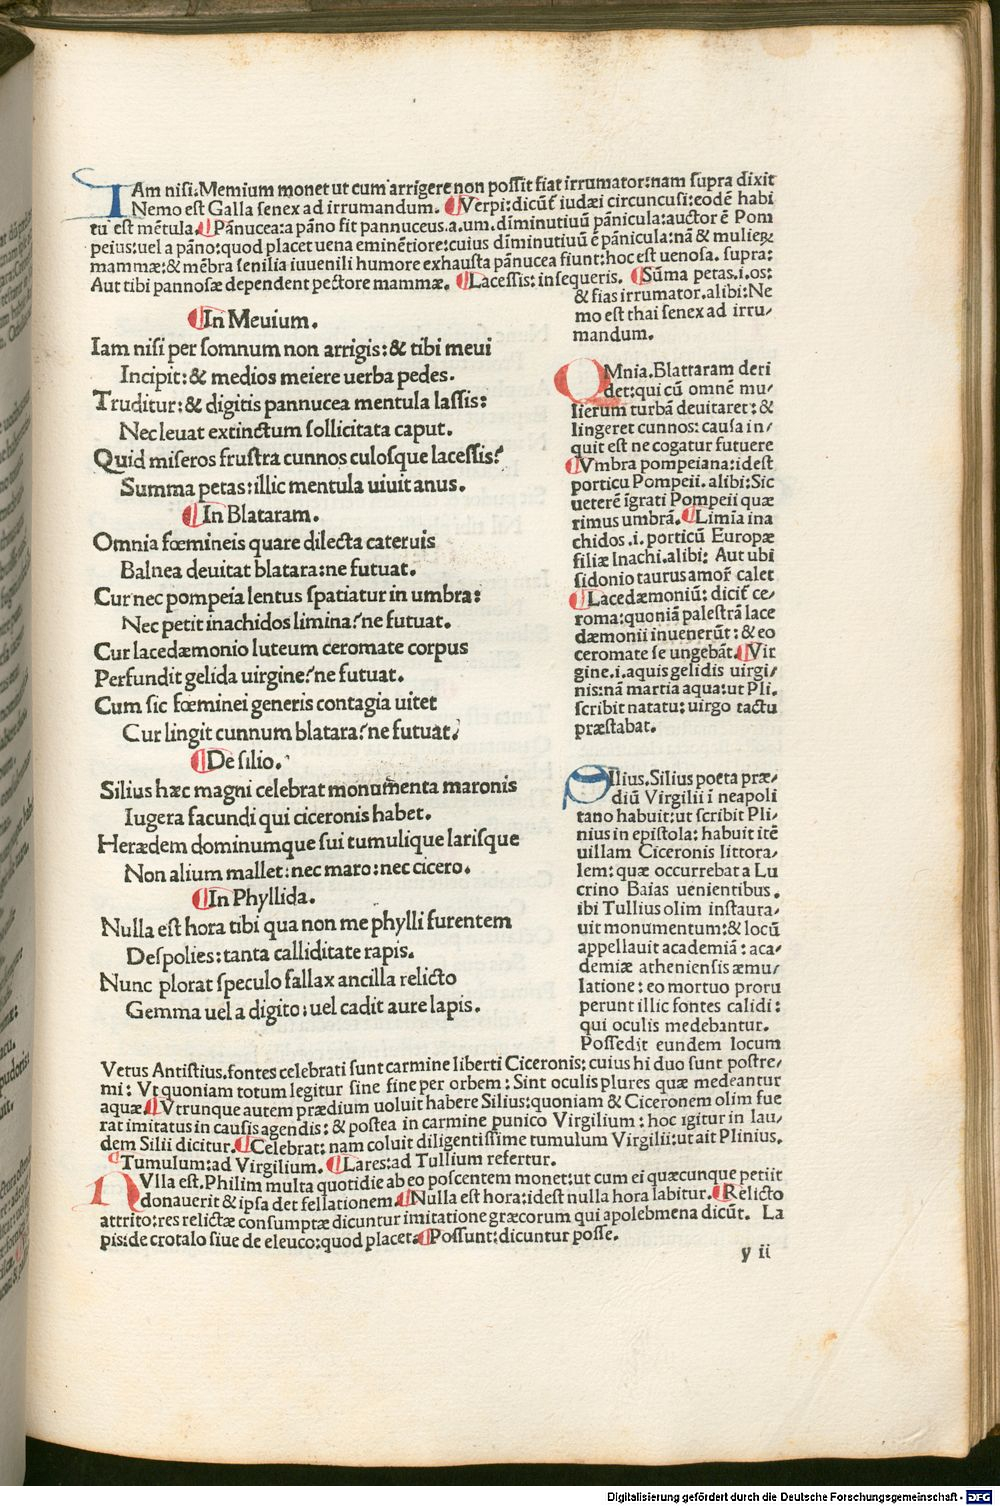 IAm nisi.Memium monet ut cum arrigere non possit fiat irrumator:nam supra dixit
Nemo est Galla senex ad irrumandum. Verpi:dicūt iudæi circuncusi:eodē habi
tu est mētula. Pānucea:a pāno fit pannuceus.a.um.dīminutiuū pānicula:auctor ē Pom
peius:uel a pāno:quod placet uena eminētiore:cuius dīminutiuū ē pānicula:nā & mulieꝝ
mammæ:& mēbra senilia iuuenili humore exhausta pānucea fiunt:hoc est uenosa. supra:
Aut tibi pannosæ dependent pectore mammæ. Lacessis:insequeris. Sūma petas.i.os:
& fias irrumator.alibi:Ne
mo est thai senex ad irru/
mandum.
In Meuium.
Iam nisi per somnum non arrigis:& tibi meui
Incipit:& medios meiere uerba pedes.
Truditur:& digitis pannucea mentula lassis:
Nec leuat extinctum sollicitata caput.
Quid miseros frustra cunnos culosque lacessis?
Summa petas:illic mentula uiuit anus.
In Blataram.
Omnia fœmineis quare dilecta cateruis
Balnea deuitat blatara:ne futuat.
Cur nec pompeia lentus spatiatur in umbra:
Nec petit inachidos limina?ne futuat.
Cur lacedæmonio luteum ceromate corpus
Perfundit gelida uirgine?ne futuat.
Cum sic fœminei generis contagia uitet
Cur lingit cunnum blatara?ne futuat.
De silio.
Silius hæc magni celebrat monumenta maronis
Iugera facundi qui ciceronis habet.
Herædem dominumque sui tumulique larisque
Non alium mallet:nec maro:nec cicero.
In Phyllida.
Nulla est hora tibi qua non me phylli furentem
Despolies:tanta calliditate rapis.
Nunc plorat speculo fallax ancilla relicto
Gemma uel a digito:uel cadit aure lapis.
OMnia.Blattaram deri
det:qui cū omnē mu/
lierum turbā deuitaret:&
lingeret cunnos:causa in/
quit est ne cogatur futuere
Vmbra pompeiana:idest
porticu Pompeii.alibi:Sic
ueterē īgrati Pompeii quæ
rimus umbrā. Limīa ina
chidos.i.porticū Europæ
filiæ Inachi.alibi: Aut ubi
sidonio taurus amor̄ calet
Lacedæmoniū: dicit ce/
roma:quoniā palestrā lace
dæmonii inuenerūt:& eo
ceromate se ungebāt. Vir
gine.i.aquis gelidis uirgi/
nis:nā martia aqua:ut Pli.
scribit natatu:uirgo tactu
præstabat.
SIlius.Silius poeta præ/
diū Virgilii ī neapoli
tano habuit:ut scribit Pli/
nius in epistola: habuit itē
uillam Ciceronis littora/
lem:quæ occurrebat a Lu
crino Baias uenientibus.
ibi Tullius olim instaura/
uit monumentum:& locū
appellauit academiā: aca/
demiæ atheniensis æmu/
latione: eo mortuo proru
perunt illic fontes calidi:
qui oculis medebantur.
Possedit eundem locum
Vetus Antistius.fontes celebrati sunt carmine liberti Ciceronis:cuius hi duo sunt postre/
mi: Vt quoniam totum legitur sine fine per orbem: Sint oculis plures quæ medeantur
aquæ. Vtrunque autem prædium uoluit habere Silius:quoniam & Ciceronem olim fue
rat imitatus in causis agendis: & postea in carmine punico Virgilium: hoc igitur in lau/
dem Silii dicitur. Celebrat: nam coluit diligentissime tumulum Virgilii:ut ait Plinius.
Tumulum:ad Virgilium. Lares:ad Tullium refertur.
NVlla est.Philim multa quotidie ab eo poscentem monet:ut cum ei quæcunque petiit
donauerit & ipsa det fellationem. Nulla est hora:idest nulla hora labitur. Relicto
attrito:res relictæ consumptæ dicuntur imitatione græcorum qui apolebmena dicūt. La
pis:de crotalo siue de eleuco:quod placet. Possunt:dicuntur posse.
y ii
Digitalisierung gefördert durch die Deutsche Forschungsgemeinschaft - DFG